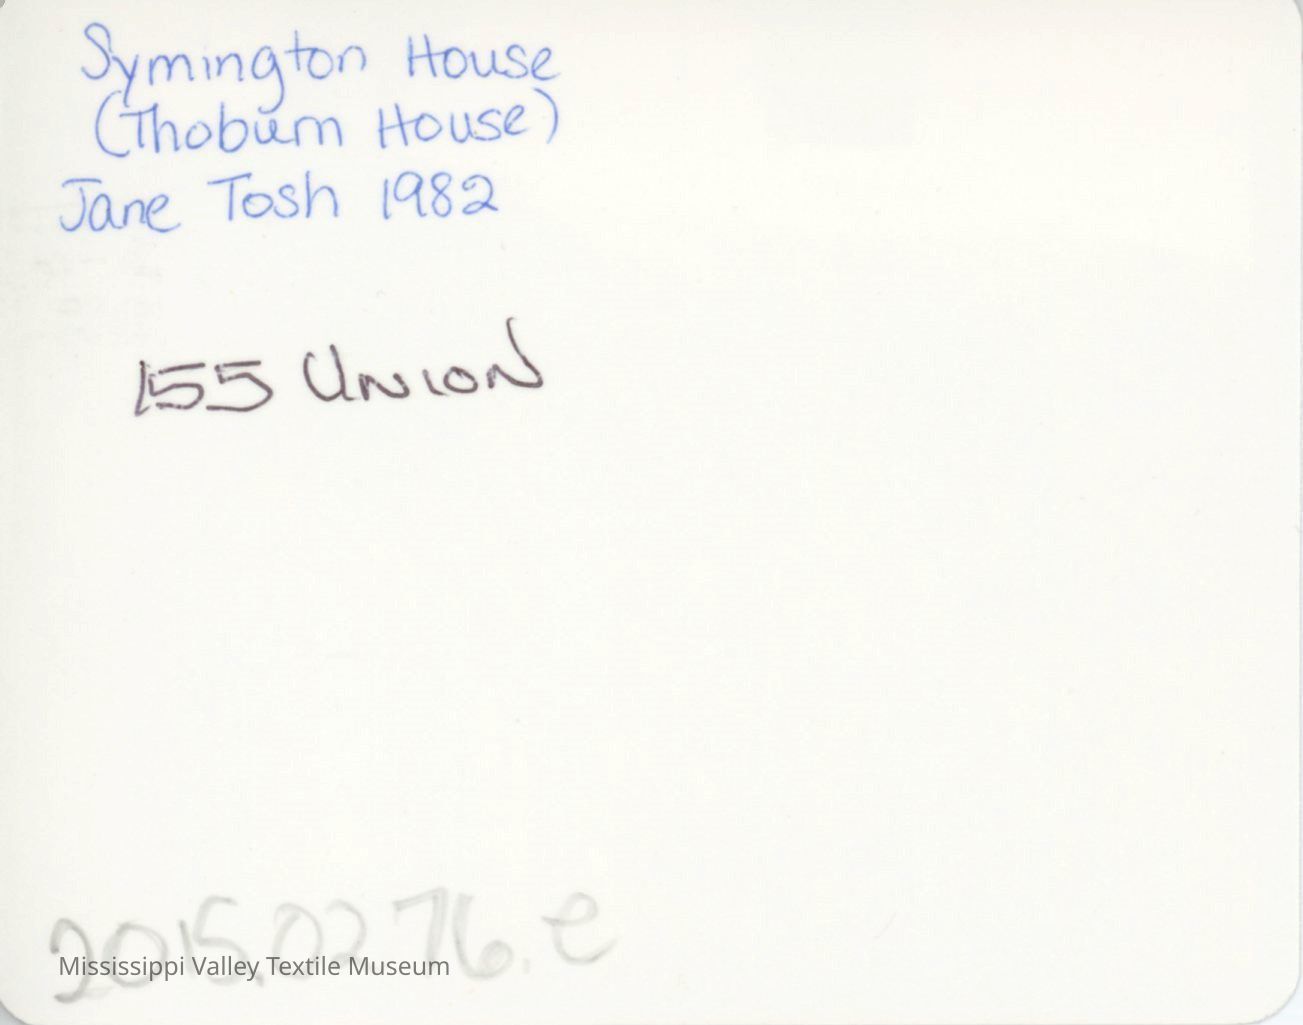 Symington House
(Thoburn House)
Jane Tosh 1982
155 UNION
2015.0276.e
Mississippi Valley Textile Museum